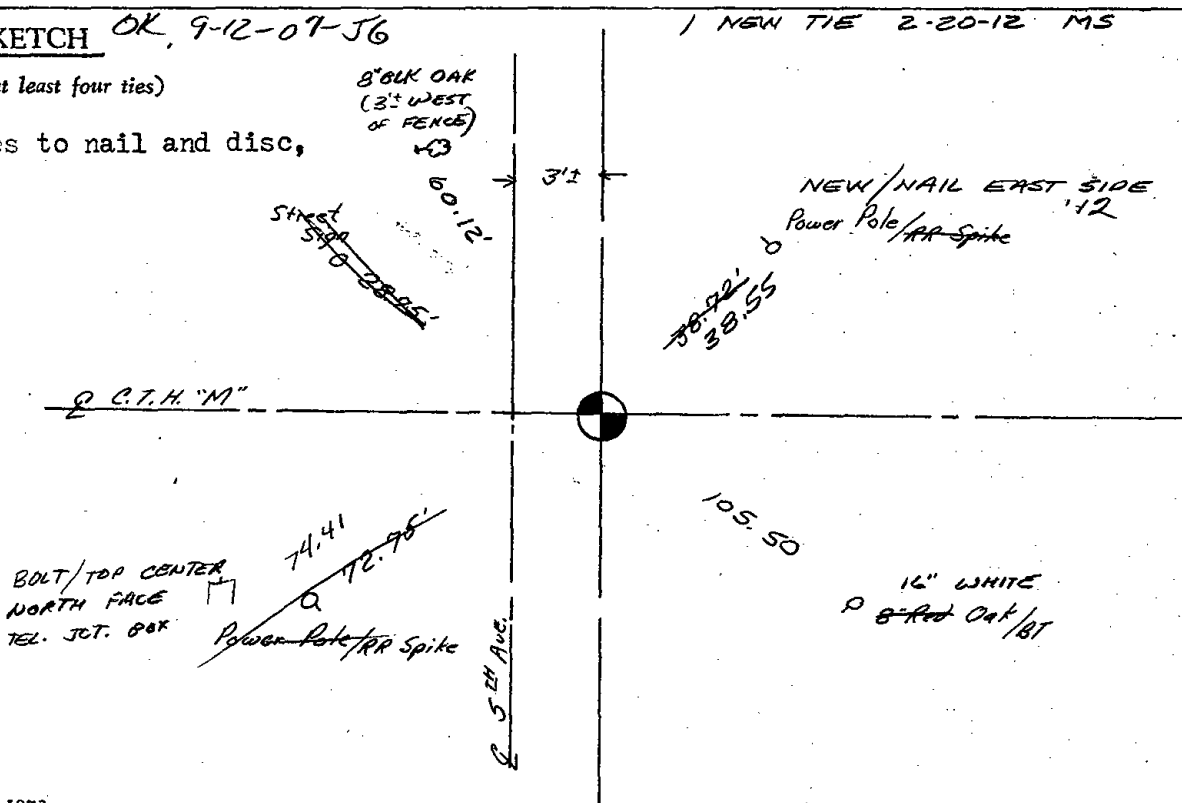 KETCH OK, 9-12-07-JG
1 NEW TIE 2-20-12 MS
t least four ties)
es to nail and disc,
8" BLK OAK
(3'± WEST
OF FENCE)
60.12'
3'±
Street
Sign
28.95'
NEW/NAIL EAST SIDE
'12
Power Pole/RR Spike
38.72'
38.55
℄ C.T.H. "M"
74.41
72.75'
BOLT/TOP CENTER
NORTH FACE
TEL. JCT. BOX
Power Pole/RR Spike
105.50
16" WHITE
8" Red Oak/BT
℄ 5TH Ave.